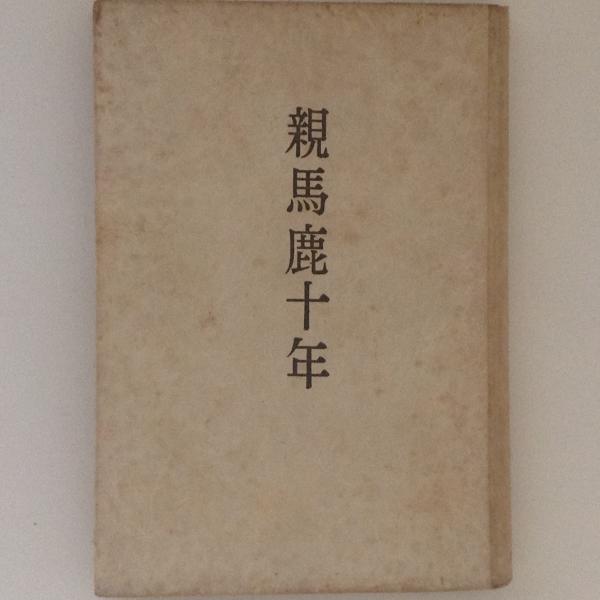 親馬鹿十年